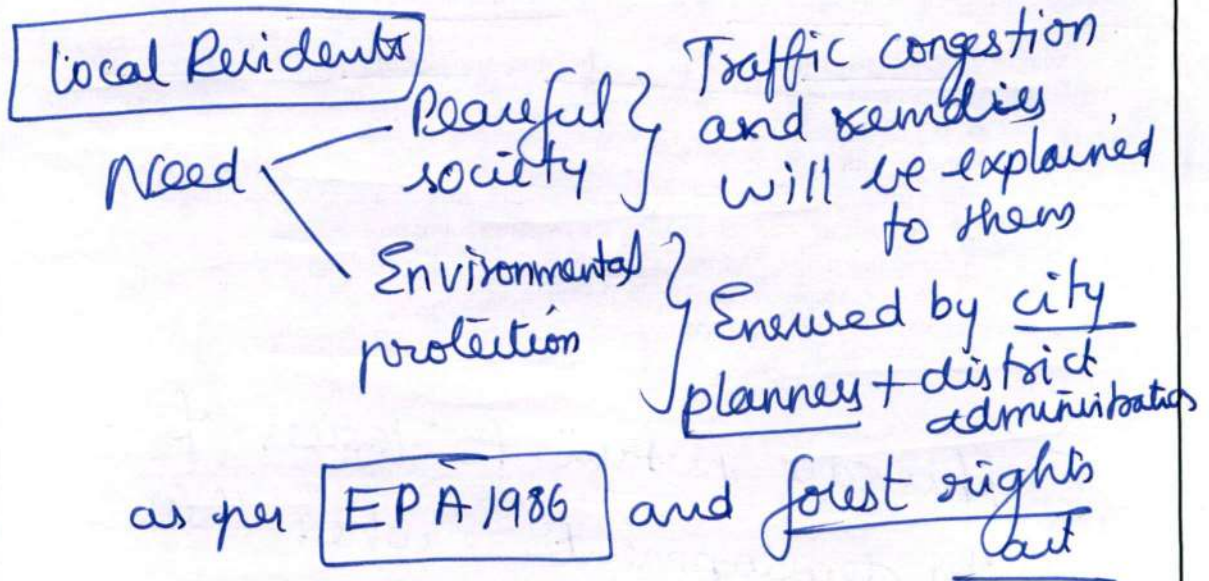 Local Residents
Need
Peaceful society
Traffic congestion
and remdies
will be explained
to them
Environmental
protection
Ensured by city
planners + district
administration
as per EPA 1986 and forest rights
act